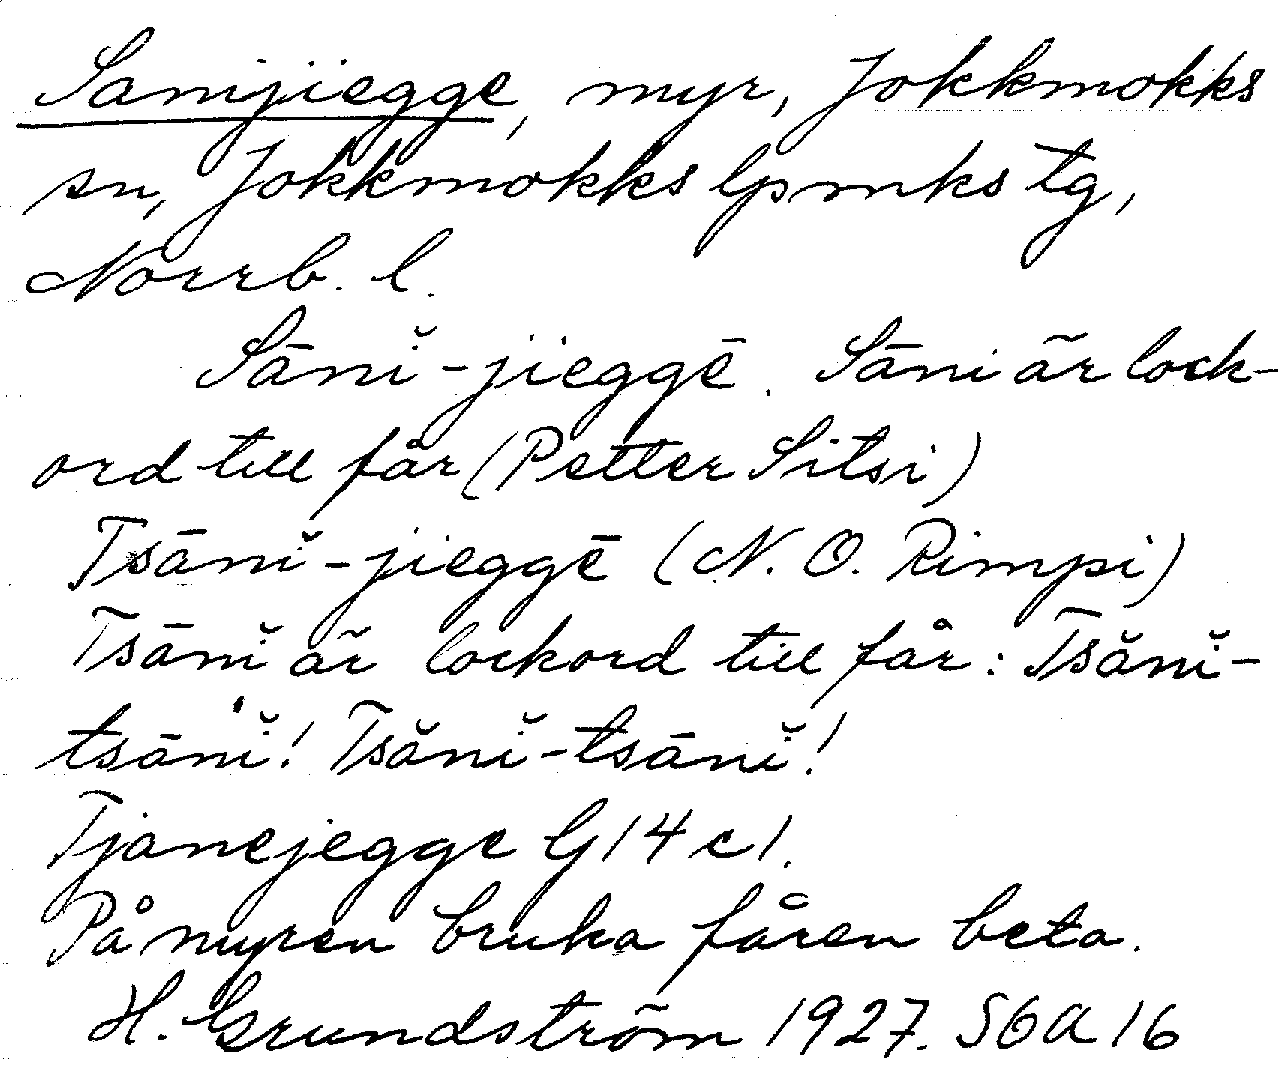 Sanijiegge, myr, Jokkmokks
sn, Jokkmokks lpmks tg,
Norrb. l.
Sānĭ-jieggē. Sāni är lock-
ord till får (Petter Sitsi)
Tsānĭ-jieggē (N. O. Rimpi)
Tsānĭ är lockord till får: Tsănĭ-
tsānĭ! Tsănĭ-tsānĭ!
Tjanejegge G 14 c 1.
På myren bruka fåren beta.
H. Grundström 1927. SGA 16